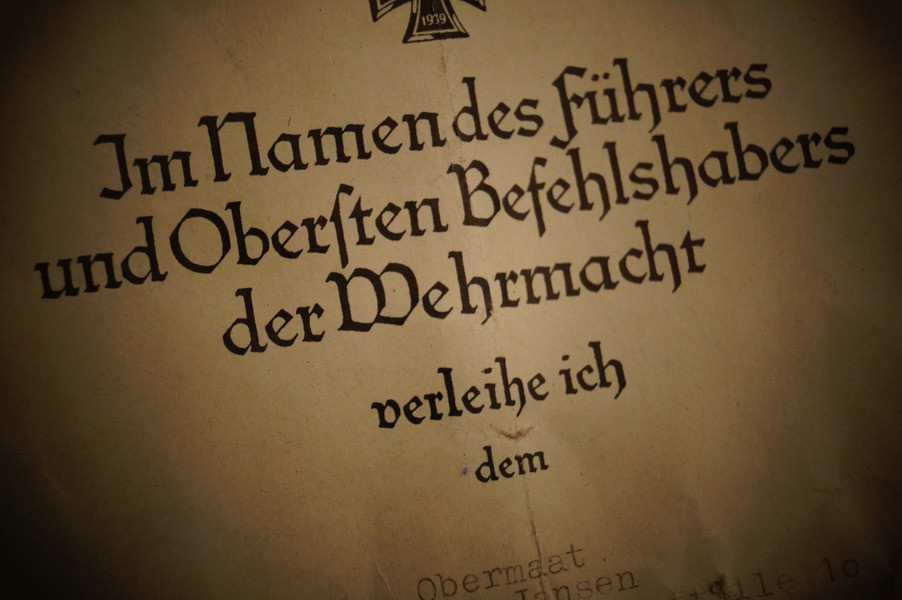 1939
Im Namen des Führers
und Oberſten Befehlshabers
der Wehrmacht
verleihe ich
dem
Obermaat
Jansen